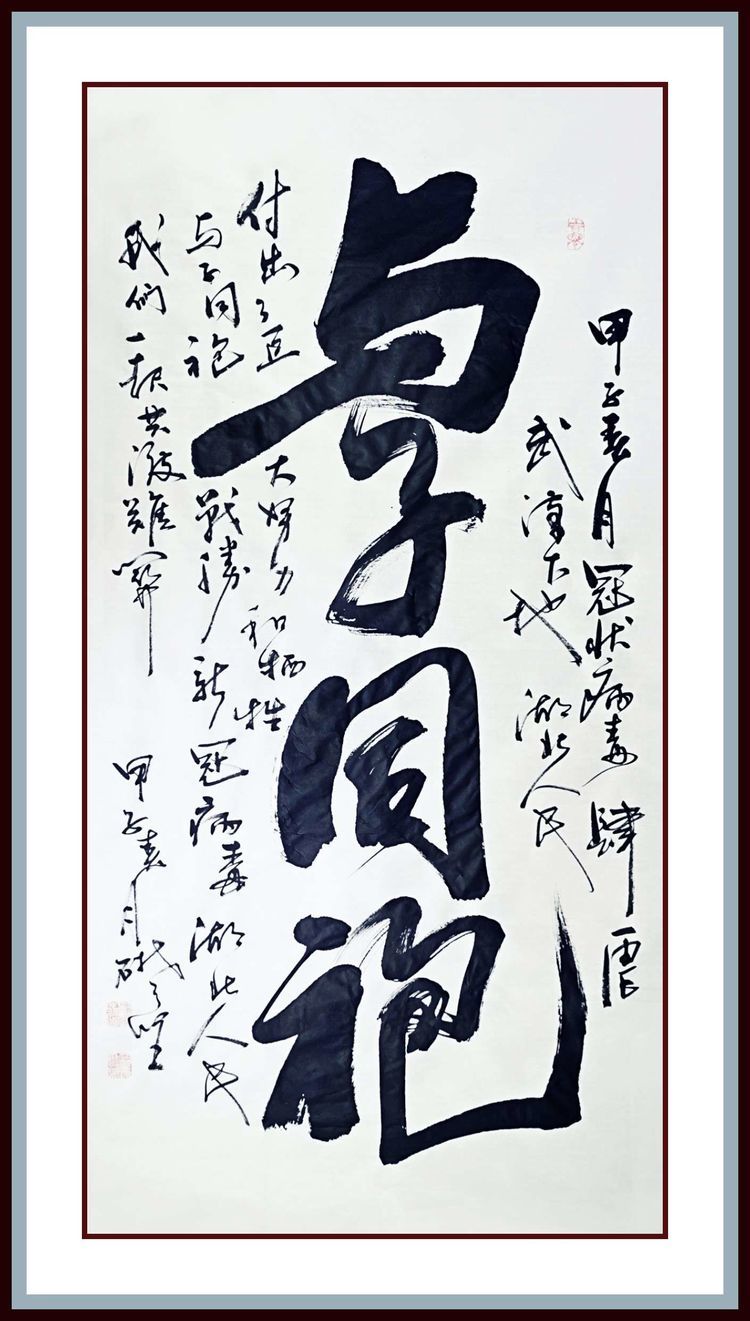 甲子春月冠状病毒肆虐
武漢大地湖北人民
与子同袍
付出了巨大努力和牺牲
与子同袍戰勝新冠病毒湖北人民
我们一起共渡難關
甲子春月